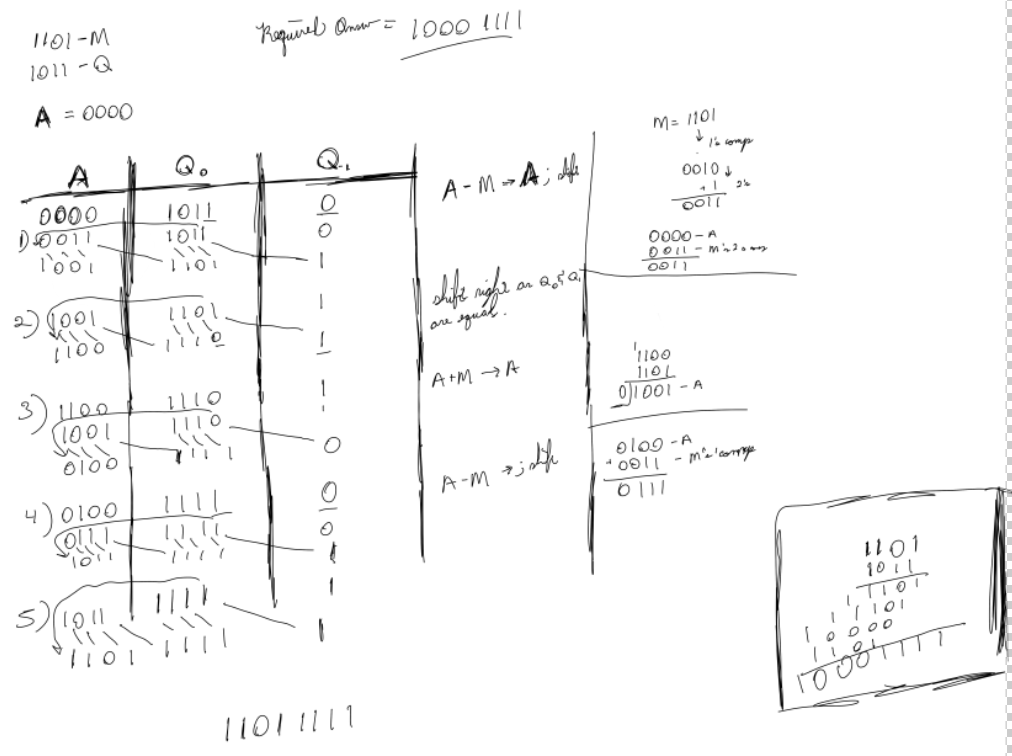 1101 - M
1011 - Q
A = 0000
Required Answ = 1000 1111
A Q₀ Q₋₁
0000 1011 0
1) 0011 1011 0
1001 1101 1
A - M → A ; shift
2) 1001 1101 1
1100 1110 1
shift right as Q₀ & Q₋₁
are equal.
3) 1100 1110 1
1001 1110
0100 1111 0
A + M → A
4) 0100 1111 0
0111 1111 0
1011 1111 1
A - M → ; shift
5) 1011 1111 1
1101 1111 1
1101 1111
M = 1101
↓ 1's comp
0010 ↓
+1 2's
0011
0000 - A
0011 - M's 2 comp
0011
1
1100
1101
0]1001 - A
0100 - A
+0011 - M's
0111
1101
1011
1101
11101
10000
1101
10001111